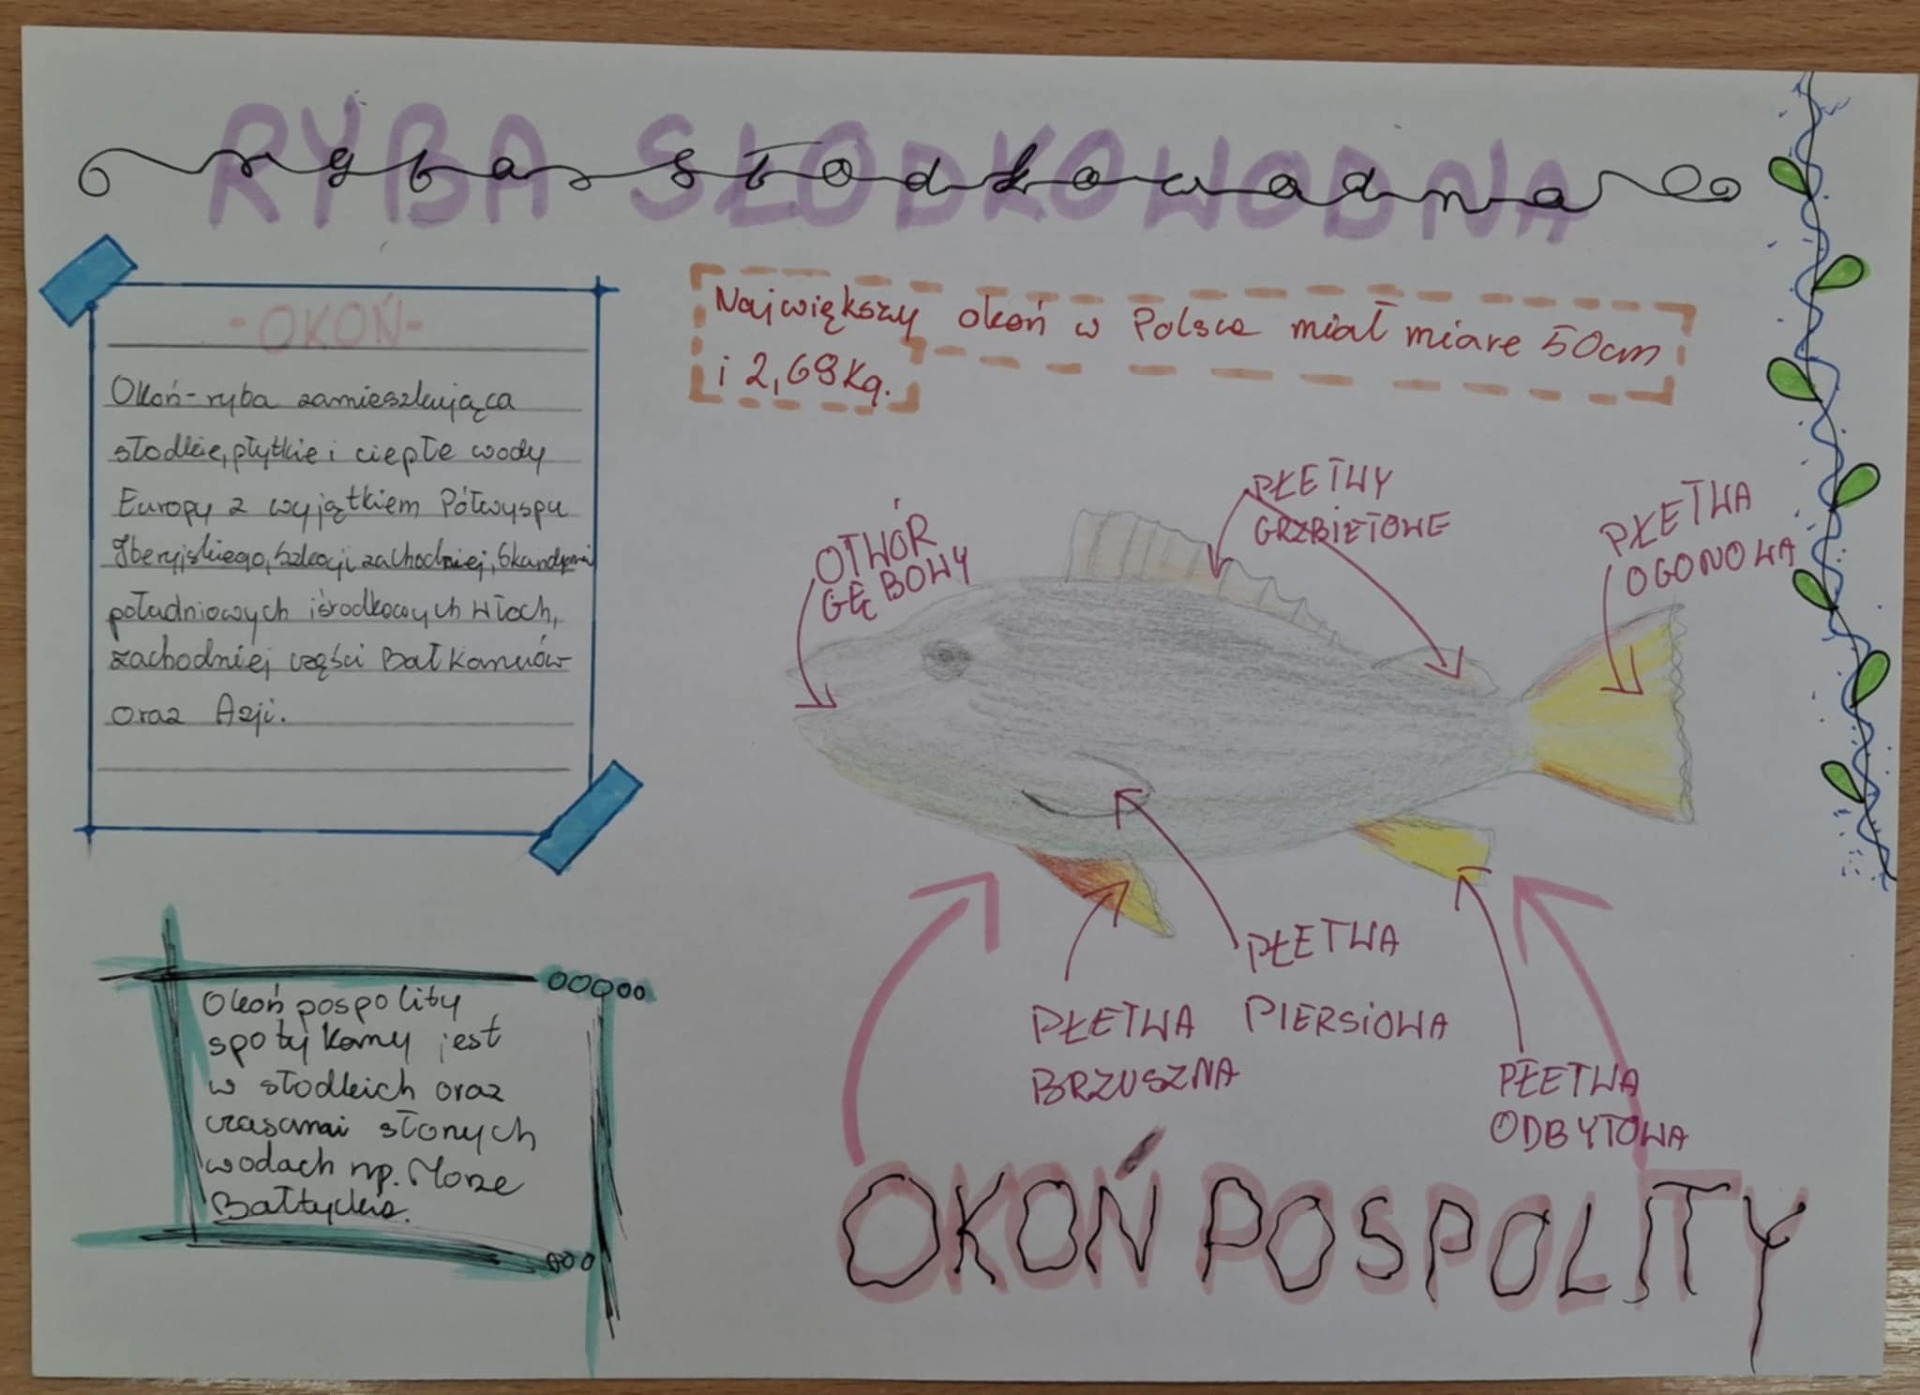 RYBA SŁODKOWODNA
ryba słodkowadna
-OKOŃ-
Okoń-ryba zamieszkująca
słodkie, płytkie i ciepłe wody
Europy z wyjątkiem Półwyspu
Iberyjskiego, Szkocji zachodniej, Skandynawi
południowych iśrodkowych Włoch,
zachodniej części Bałkanuów
oraz Azji.
Największy okoń w Polsce miał miare 50cm
i 2,69Kg.
OTWÓR
GĘBOWY
PŁETWY
GRZBIETOWE
PŁETWA
OGONOWA
PŁETWA
BRZUSZNA
PŁETWA
PIERSIOWA
PŁETWA
ODBYTOWA
Okoń pospolity
spotykany jest
w słodkich oraz
czasami słonych
wodach np. Morze
Bałtyckie.
OKOŃ POSPOLITY